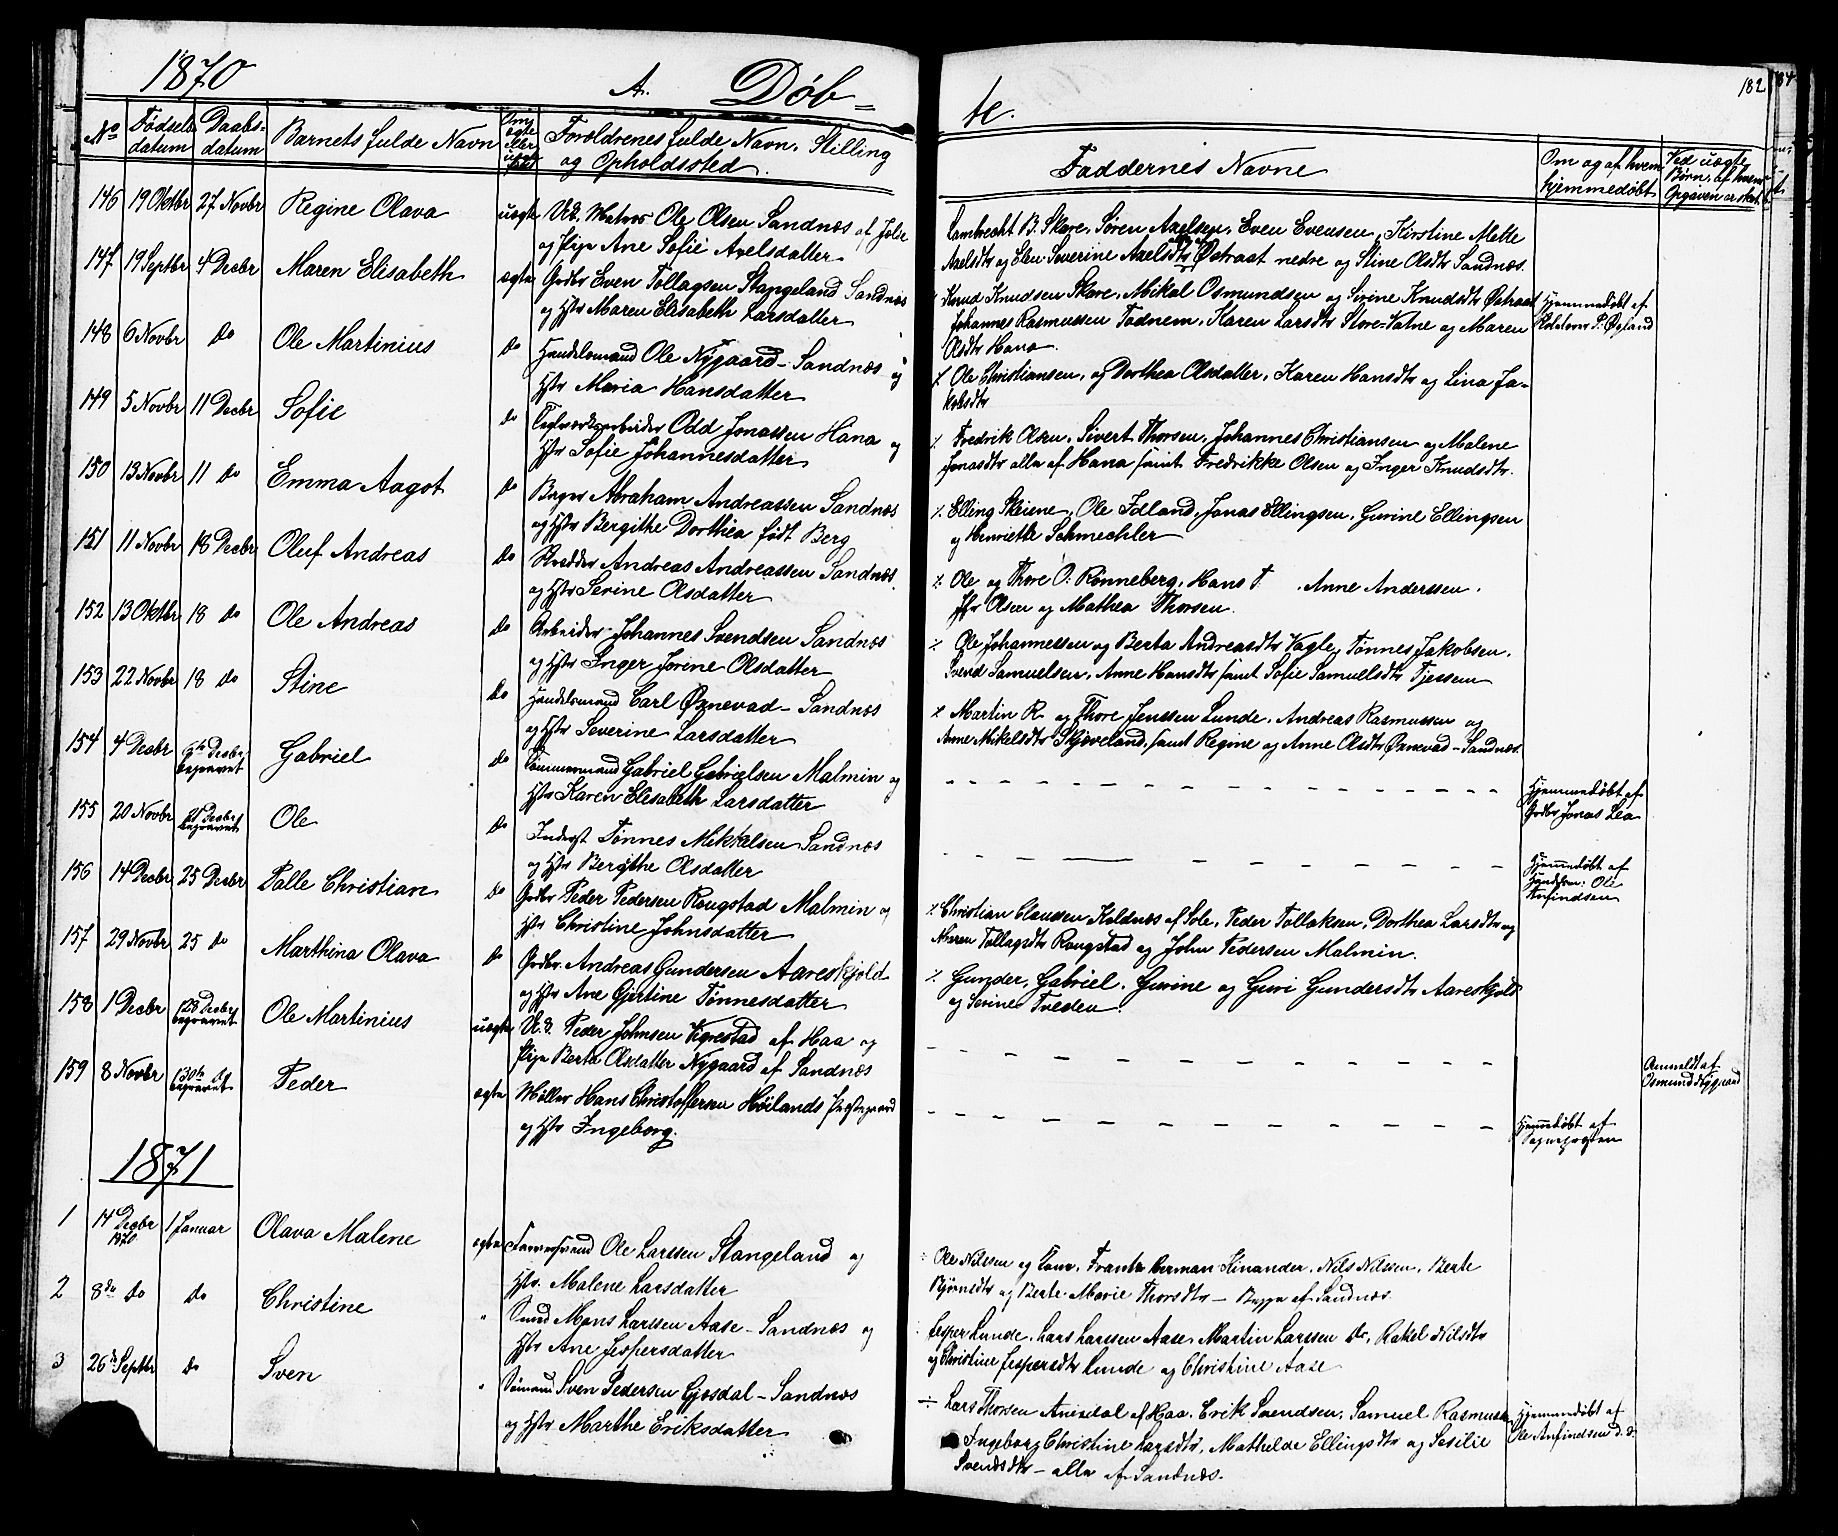 1870 A. Døb-
te. 182
No Fødsels datum Daabs- datum Barnets fulde Navn Om ægte eller uægte Forældrenes fulde Navn, Stilling og Opholdssted.
Faddernes Navne
Om og af hvem hjemmedøbt
Ved uægte Børn, af hvem Opgaven er skeet
146 19 Oktbr 27 Novbr Regine Olava uægte U.K. Matros Ole Olsen Sandnæs af
og Pige Ane Sofie Axelsdatter
Lambrecht B. Skare, Søren Axelsen, Even Evensen, Kirstine Mette
Axelsdtr og Elen Severine Axelsdtr Østraat nedre og Stine Olsdtr Sandnæs.
147 19 Septbr 4 Decbr Maren Elisabeth ægte Grdbr Even Tollagsen Stangeland Sandnæs
og Hstr Maren Elisabeth Larsdatter
Knud Knudsen Skare, Mikal Osmundsen og Serine Knudsdtr Østraat
Johannes Rasmussen Todnem, Karen Larsdtr Store-Vatne og Maren
Olsdtr Hana.
Hjemmedøbt af
P. Øgland
148 6 Novbr do Ole Martinius do Handelsmand Ole Nygaard - Sandnæs og
Hstr Maria Hansdatter
Ole Christiansen, og Dorthea Olsdatter, Karen Hansdtr og Lina Ja-
kobsdtr
149 5 Novbr 11 Decbr Sofie do Teglværksarbeider Odd Jonassen Hana og
Hstr Sofie Johannesdatter
Fredrik Olsen, Sivert Thorsen, Johannes Christiansen og Malene
Jonasdtr alle af Hana samt Fredrikke Olsen og Inger Knudsdtr.
150 13 Novbr 11 do Emma Aagot do Bager Abraham Andreassen Sandnæs
og Hstr Bergithe Dorthea født Berg
Elling Skeiene, Ole Idland, Jonas Ellingsen, Gurine Ellingsen
og Henriette Schmechler
151 11 Novbr 18 Decbr Oluf Andreas do Skrædder Andreas Andreassen Sandnæs
og Hstr Serine Olsdatter
Ole og Thore O. Rønneberg, Hans T. Anne Anderssen.
Jfr Olsen og Mathea Thorsen.
152 13 Oktbr 18 do Ole Andreas do Arbeider Johannes Svendsen Sandnæs
og Hstr Inger Jorine Olsdatter
Ole Johannessen og Berta Andreasdtr Vagle, Tønnes Jakobsen.
Svend Samuelsen, Anne Hansdtr samt Sofie Samuelsdtr Tjessem
153 22 Novbr 18 do Stine do Handelsmand Carl Øznevad - Sandnæs
og Hstr Severine Larsdatter
Martin R. og Thore Jenssen Lunde, Andreas Rasmussen og
Anne Mikelsdtr Skjæveland, samt Regine og Anne Olsdtr Øznevad - Sandnæs
154 4 Decbr Decbr begravet Gabriel do Tømmermand Gabriel Gabrielsen Malmin og
Hstr Karen Elisabeth Larsdatter
Hjemmedøbt af
Grdbr Jonas Lea
155 20 Novbr Decbr begravet Ole do Inderst Tønnes Mikkelsen Sandnæs
og Hstr Bergithe Olsdatter
Hjemmedøbt af
Ole
Anfindsen
156 14 Decbr 25 Decbr Palle Christian do Grdbr Peder Pedersen Rougstad Malmin og
Hstr Christine Johnsdatter
Christian Clausen Koldnæs af Sole, Peder Tollaksen, Dorthea Larsdtr og
Maren Tollagsdtr Rougstad og John Pedersen Malmin.
157 29 Novbr 25 do Marthina Olava do Grdbr. Andreas Gundersen Aareskjold
og Hstr Ane Gjertine Tønnesdatter
Gunder, Gabriel, Gurine og Guri Gundersdtr Aareskjold
og Serine Tveden.
158 1 Decbr 28 Decbr begravet Ole Martinius uægte U.K. Peder Johnsen Vigrestad af Haa og
Pige Berta Olsdatter Nygaard af Sandnæs
Anmeldt af
Osmund Nygaard
159 8 Novbr 30te do begravet Peder ægte Møller Hans Christoffersen Høilands Præstegaard
og Hstr Ingeborg.
Hjemmedøbt af
Sognepresten
1871
1 14 Decbr 1870 1 Januar Olava Malene ægte Garversvend Ole Larssen Stangeland og
Hstr. Malene Larsdatter
Ole Nilssen og Kone, Frants Herman Kinander, Nils Nilssen, Berte
Bjørnsdtr og Berte Marie Thorsdtr - Begge af Sandnæs.
2 8de do do Christine " Smed Mons Larssen Aase - Sandnæs og
Hstr Ane Jespersdatter
Jesper Lunde, Lars Larssen Aase, Martin Larssen do, Rakel Nilsdtr
og Christine Jespersdtr Lunde og Christine Aase
3 26de Septbr do Sven " Sømand Sven Pedersen Gjosdal - Sandnæs
og Hstr Marthe Eriksdatter
Lars Thorsen Aniesdal af Haa, Erik Svendsen, Samuel Rasmussen
Ingeborg Christine Larsdtr, Mathilde Ellingsdtr og Sesilie
Svendsdtr - alle af Sandnæs.
Hjemmedøbt af
Ole Anfindsen